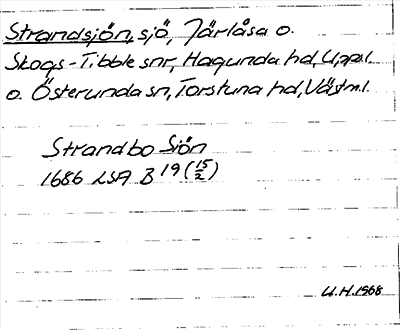 Strandsjön, sjö, Järlåsa o.
Skogs-Tibble snr, Hagunda hd, Uppl.
o. Österunda sn, Torstuna hd, Västml.
Strandbo Siön
1686 LSA B 19 (15/2)
U.H. 1968